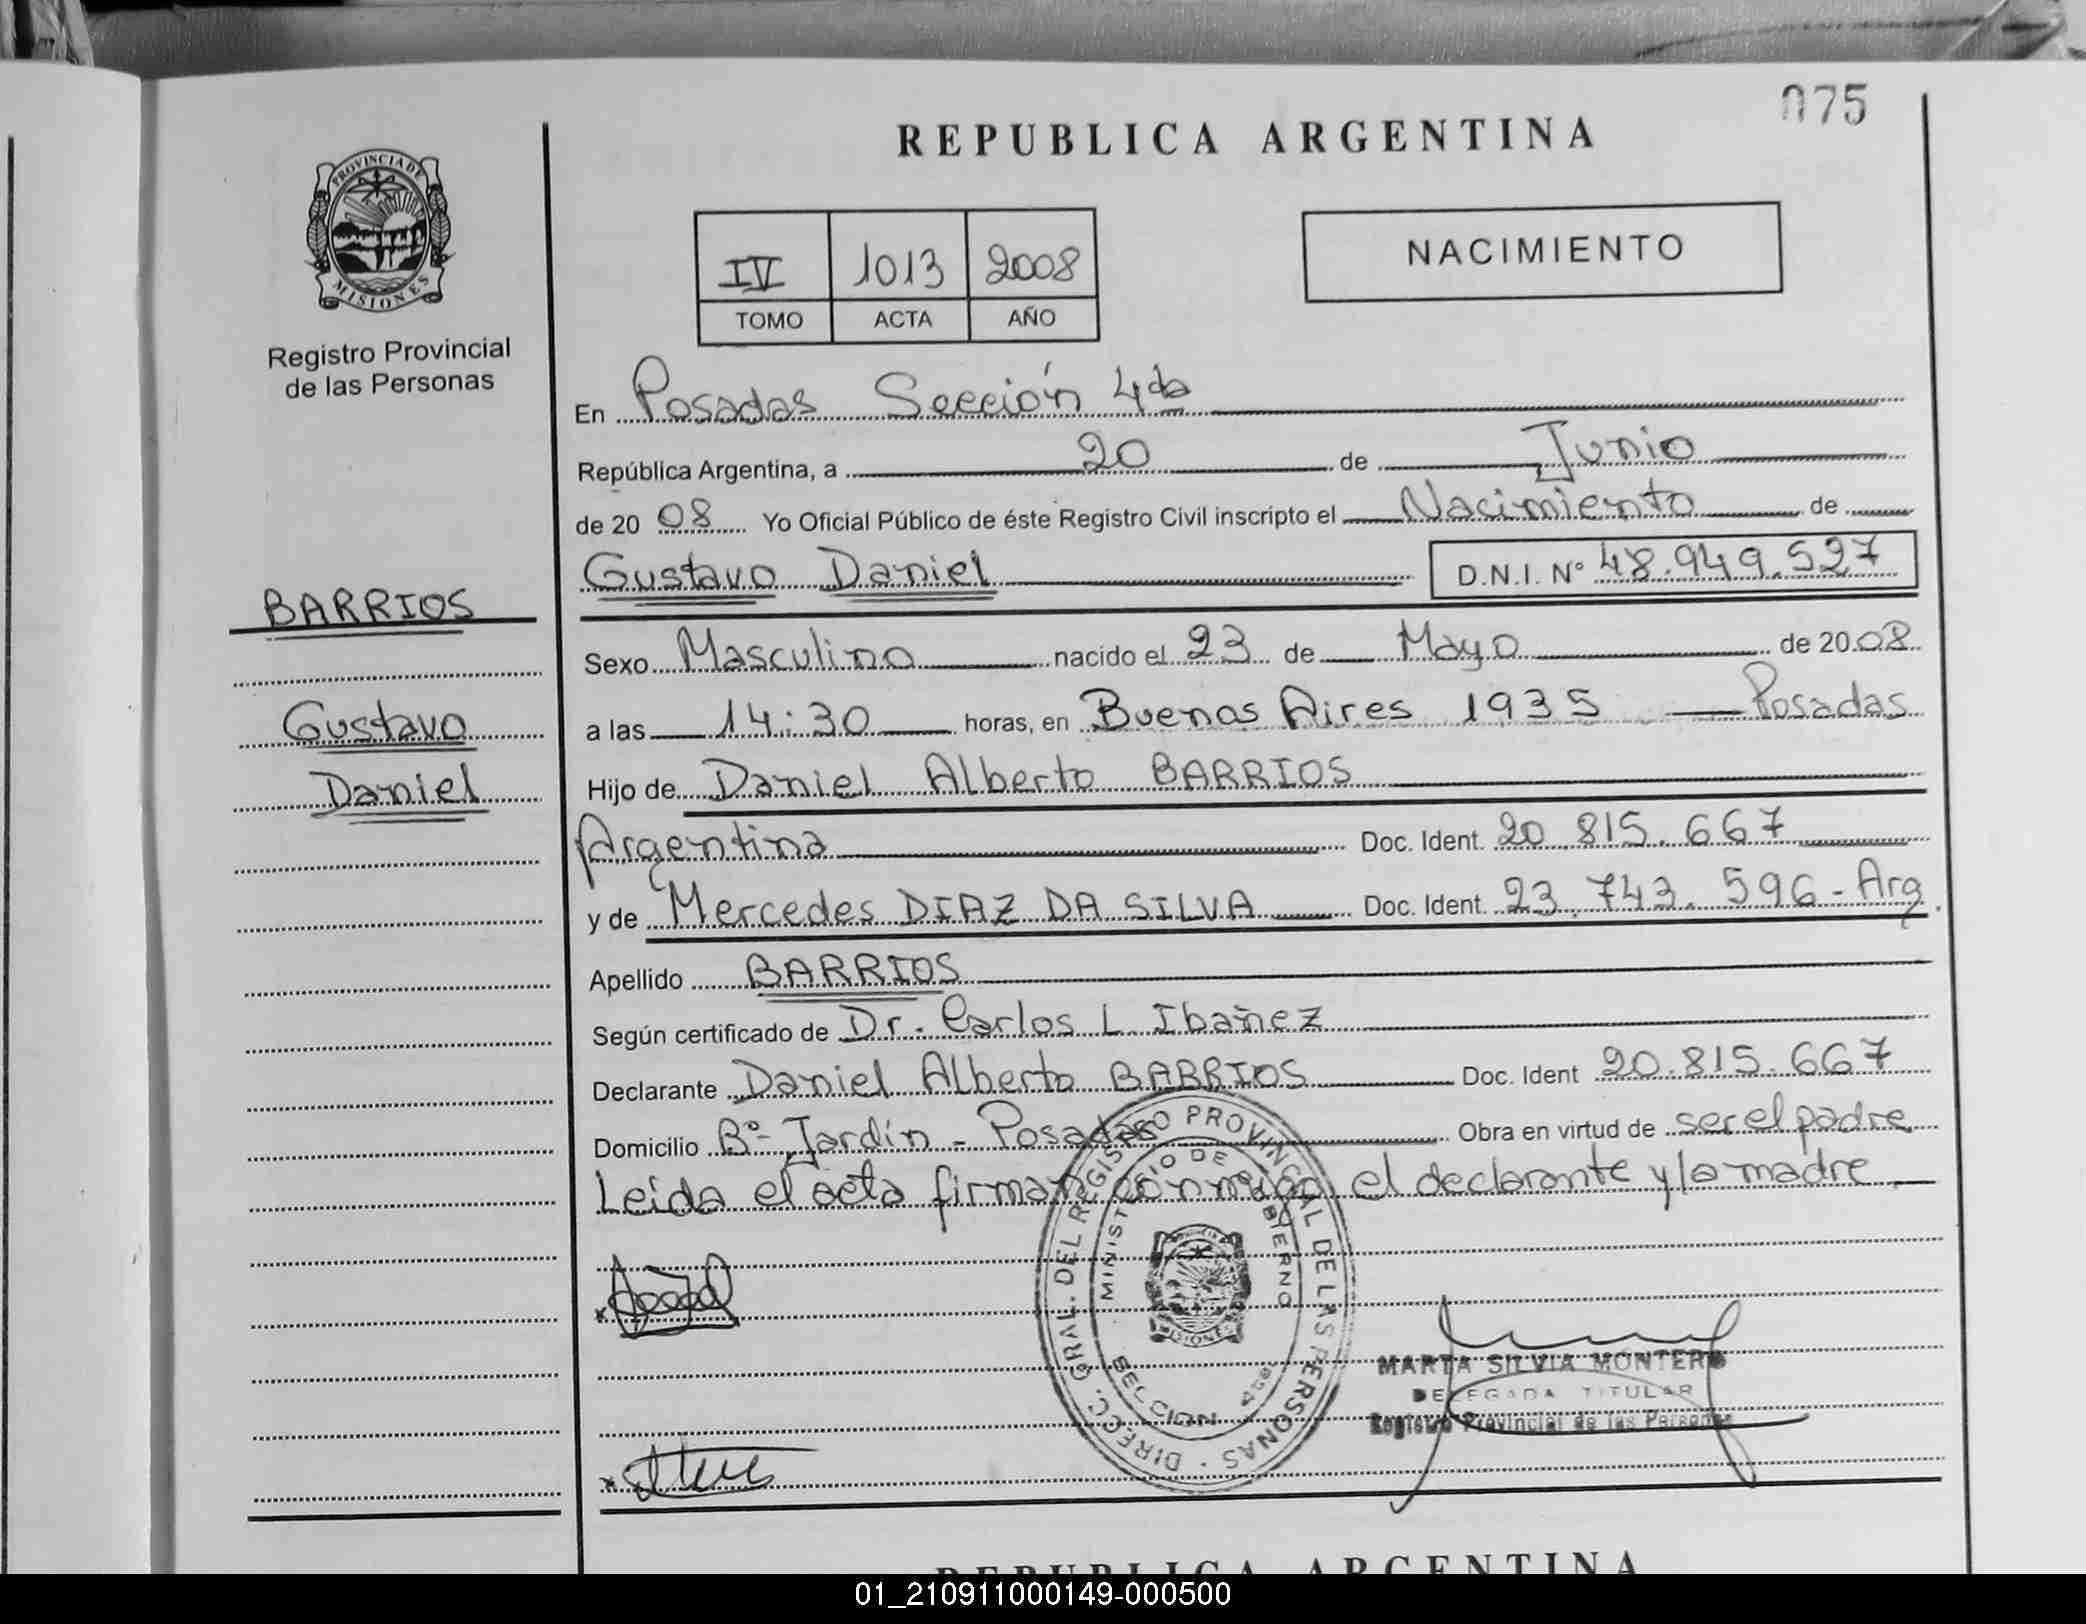 075
REPUBLICA ARGENTINA
PROVINCIA DE
MISIONES
Registro Provincial
de las Personas
IV 1013 2008
TOMO ACTA AÑO
NACIMIENTO
En Posadas Sección 4da
República Argentina, a 20 de Junio
de 20 08 Yo Oficial Público de éste Registro Civil inscripto el Nacimiento de
Gustavo Daniel D.N.I. Nº 48.949.527
BARRIOS
Gustavo
Daniel
Sexo Masculino nacido el 23 de Mayo de 2008
a las 14:30 horas, en Buenos Aires 1935 Posadas
Hijo de Daniel Alberto BARRIOS
Argentina Doc. Ident. 20.815.667
y de Mercedes DIAZ DA SILVA Doc. Ident. 23.743.596-Arg.
Apellido BARRIOS
Según certificado de Dr. Carlos L Ibañez
Declarante Daniel Alberto BARRIOS Doc. Ident 20.815.667
Domicilio Bº- Jardín - Posadas Obra en virtud de ser el padre
Leida el acta firman conmigo el declarante y la madre
DIRECC. GRAL. DEL REGISTRO PROVINCIAL DE LAS PERSONAS
MINISTERIO DE GOBIERNO
MISIONES
MARTA SILVIA MONTERO
DELEGADA TITULAR
Registro Provincial de las Personas
REPUBLICA ARGENTINA
01_210911000149-000500